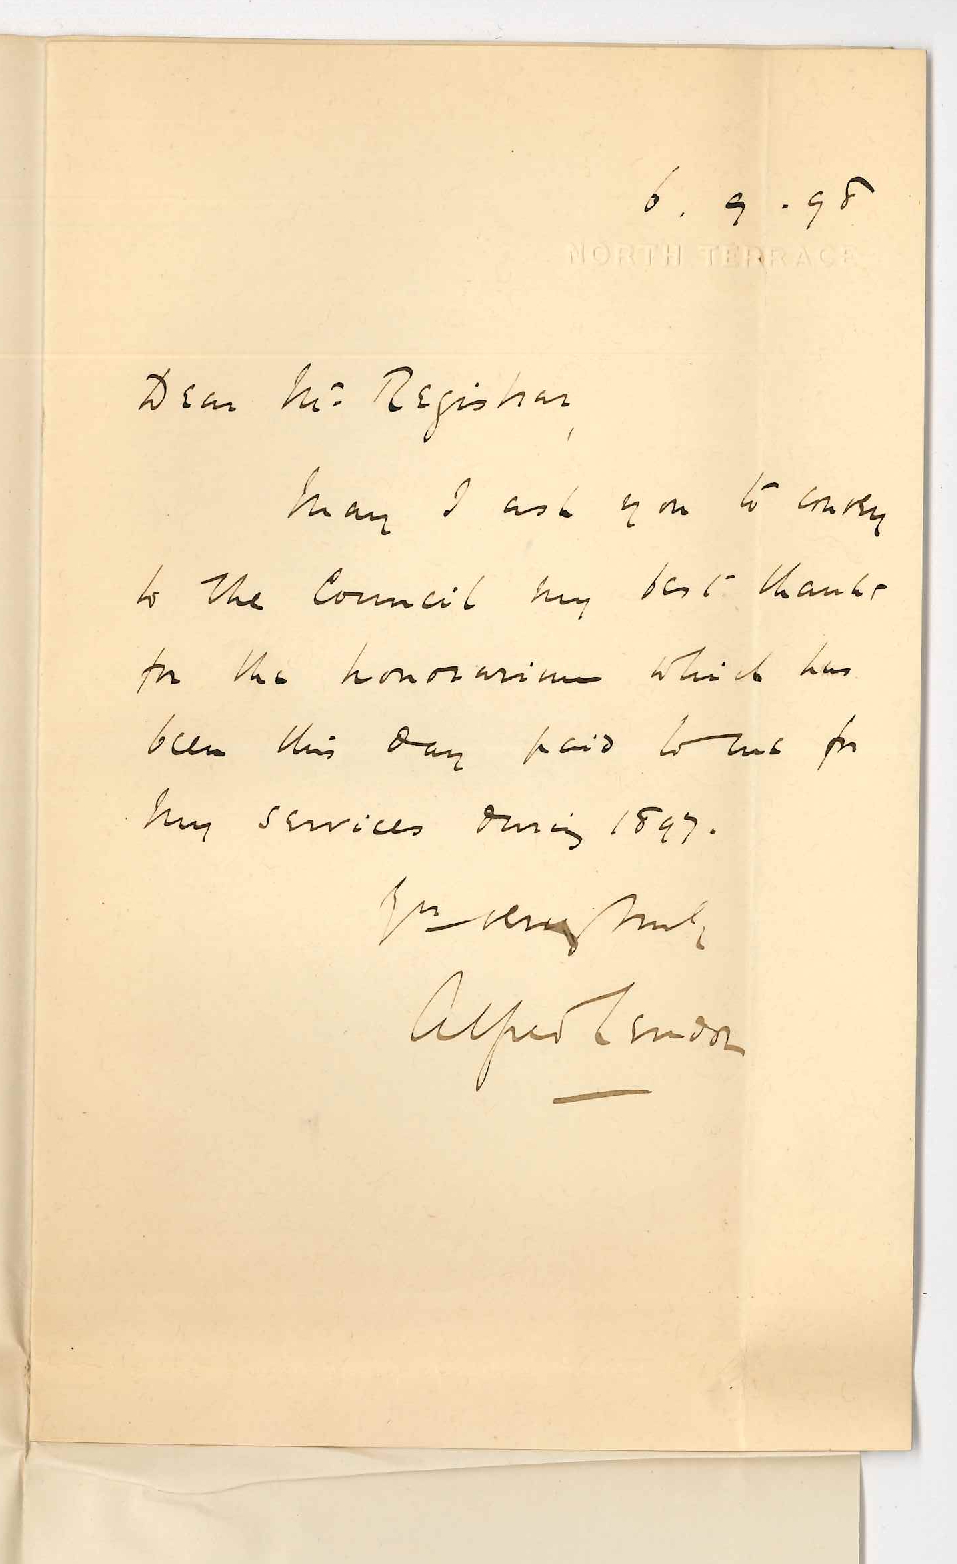 6. 9. 98
NORTH TERRACE
Dear Mr. Registrar,
May I ask you to convey
to the Council my best thanks
for the honorarium which has
been this day paid to me for
my services during 1897.
Yrs very truly
Alfred Lendon